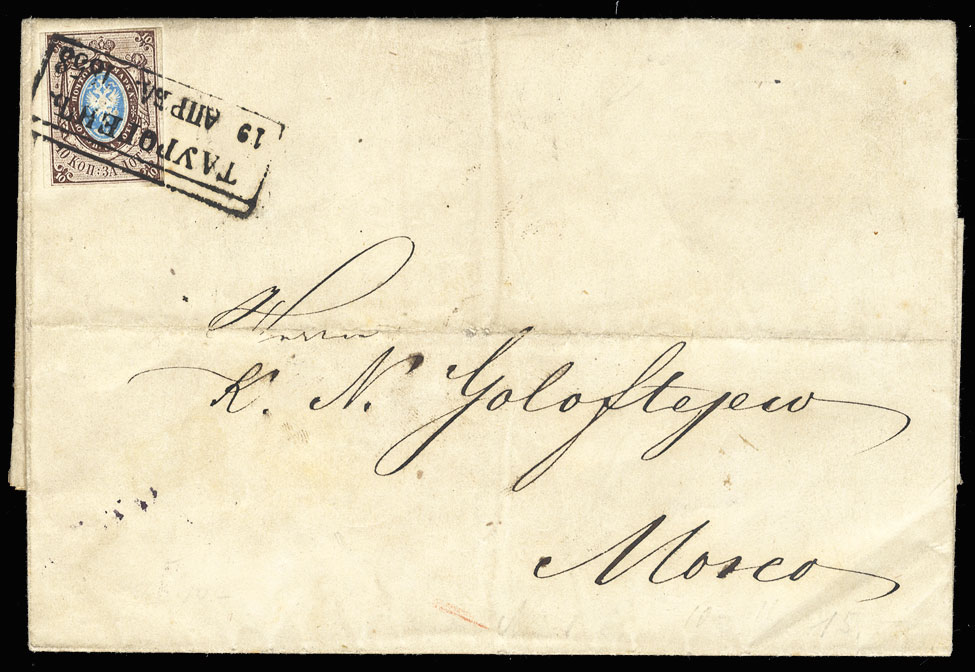 ТАУРОГЕНЪ
19 АПРѢЛ. 1858
10 КОП: ЗА ЛОТЪ
Herrn
K. N. Goloftejew
Mosco